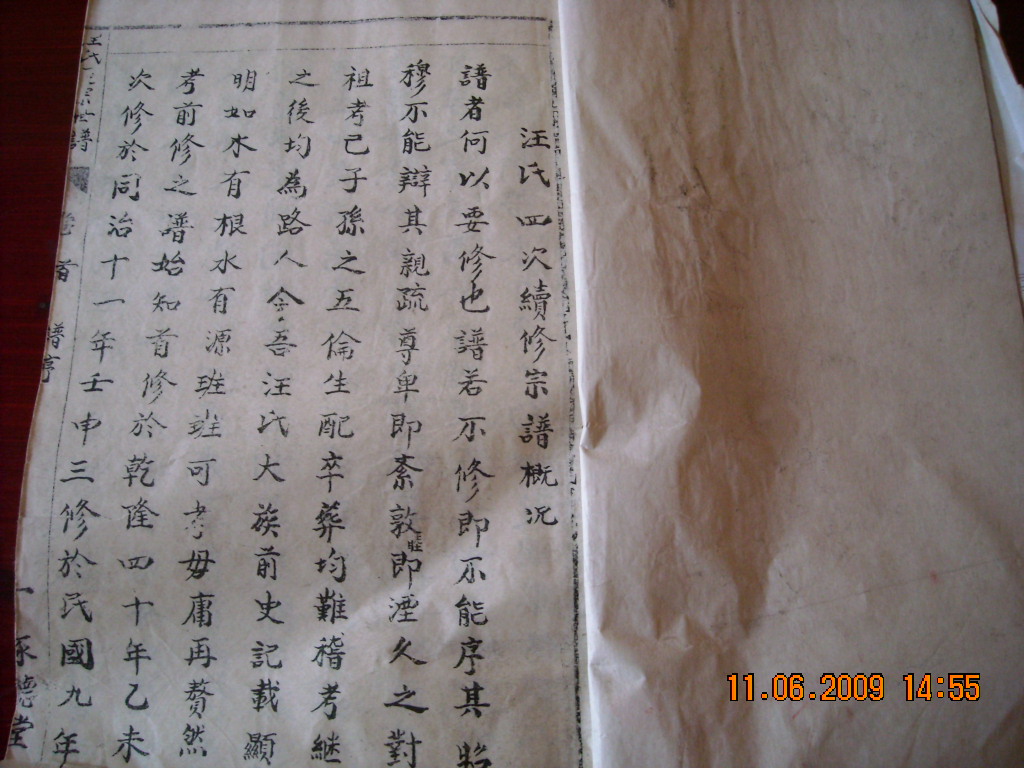 汪氏四次續修宗譜概况
譜者何以要修也譜若不修即不能序其昭
穆不能辯其親疏尊卑即紊敦旺即湮久之對
祖考己子孫之五倫生配卒葬均難稽考継
之後均為路人今吾汪氏大族前史記載顯
明如木有根水有源班班可考毋庸再贅然
考前修之譜始知首修於乾隆四十年乙未
次修於同治十一年壬申三修於民國九年
汪氏宗世譜
首
譜序
一
德堂
11.06.2009 14:55